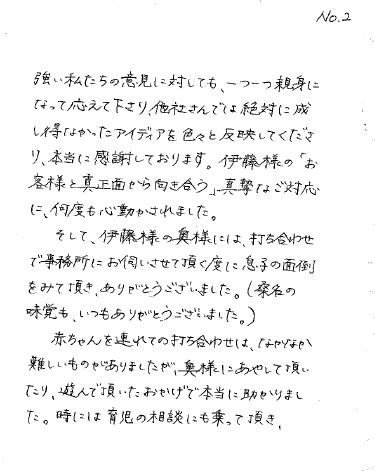 No.2
強い私たちの意見に対しても、一つ一つ親身に
なって応えて下さり、他社さんでは絶対に成
し得なかったアイディアを色々と反映してくださ
り、本当に感謝しております。伊藤様の「お
客様と真正面から向き合う」真摯なご対応
に、何度も心動かされました。
そして、伊藤様の奥様には、打ち合わせ
で事務所にお伺いさせて頂く度に息子の面倒
をみて頂き、ありがとうございました。(桑名の
味覚も、いつもありがとうございました。)
赤ちゃんを連れての打ち合わせは、なかなか
難しいものがありましたが、奥様にあやして頂い
たり、遊んで頂いたおかげで本当に助かりまし
た。時には育児の相談にも乗って頂き、